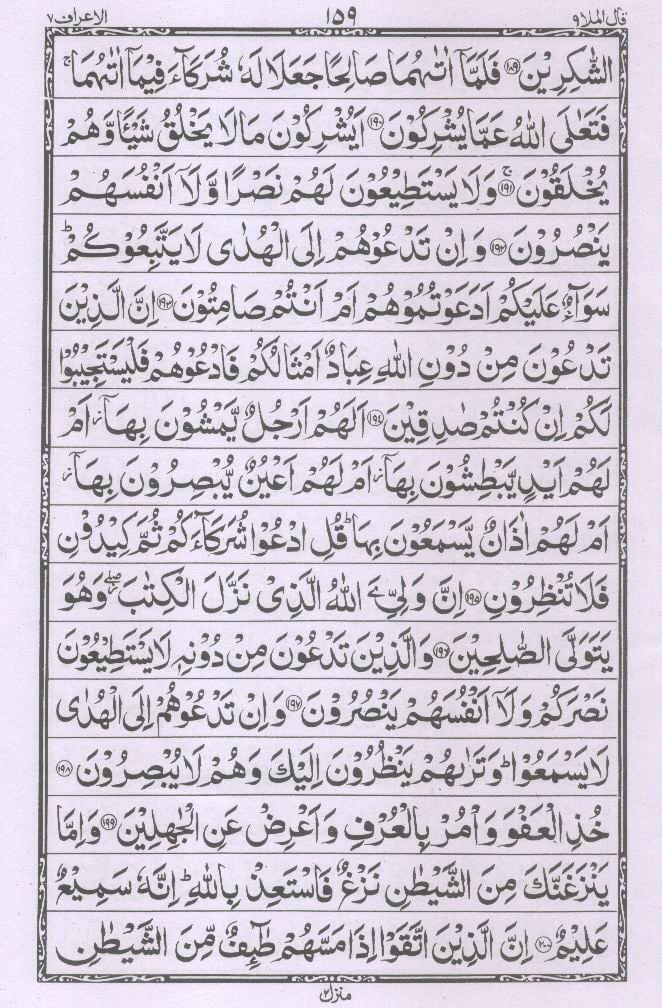 قال الملا ٩ ١٥٩ الاعراف ٧
الشّٰكِرِيْنَ ﴿۱۸۹﴾ فَلَمَّاۤ اٰتٰىهُمَا صَالِحًا جَعَلَا لَهٗ شُرَكَآءَ فِيْمَاۤ اٰتٰىهُمَا ۚ
فَتَعٰلَى اللّٰهُ عَمَّا يُشْرِكُوْنَ ﴿۱۹۰﴾ اَيُشْرِكُوْنَ مَا لَا يَخْلُقُ شَيْـًٔا وَّهُمْ
يُخْلَقُوْنَ ۚ ﴿۱۹۱﴾ وَلَا يَسْتَطِيْعُوْنَ لَهُمْ نَصْرًا وَّلَاۤ اَنْفُسَهُمْ
يَنْصُرُوْنَ ﴿۱۹۲﴾ وَاِنْ تَدْعُوْهُمْ اِلَى الْهُدٰى لَا يَتَّبِعُوْكُمْ ؕ
سَوَآءٌ عَلَيْكُمْ اَدَعَوْتُمُوْهُمْ اَمْ اَنْتُمْ صَامِتُوْنَ ﴿۱۹۳﴾ اِنَّ الَّذِيْنَ
تَدْعُوْنَ مِنْ دُوْنِ اللّٰهِ عِبَادٌ اَمْثَالُكُمْ فَادْعُوْهُمْ فَلْيَسْتَجِيْبُوْا
لَكُمْ اِنْ كُنْتُمْ صٰدِقِيْنَ ﴿۱۹۴﴾ اَلَهُمْ اَرْجُلٌ يَّمْشُوْنَ بِهَاۤ ؗ اَمْ
لَهُمْ اَيْدٍ يَّبْطِشُوْنَ بِهَاۤ ؗ اَمْ لَهُمْ اَعْيُنٌ يُّبْصِرُوْنَ بِهَاۤ ؗ
اَمْ لَهُمْ اٰذَانٌ يَّسْمَعُوْنَ بِهَا ؕ قُلِ ادْعُوْا شُرَكَآءَكُمْ ثُمَّ كِيْدُوْنِ
فَلَا تُنْظِرُوْنِ ﴿۱۹۵﴾ اِنَّ وَلِيِّۦَ اللّٰهُ الَّذِيْ نَزَّلَ الْكِتٰبَ ۖؗ وَهُوَ
يَتَوَلَّى الصّٰلِحِيْنَ ﴿۱۹۶﴾ وَالَّذِيْنَ تَدْعُوْنَ مِنْ دُوْنِهٖ لَا يَسْتَطِيْعُوْنَ
نَصْرَكُمْ وَلَاۤ اَنْفُسَهُمْ يَنْصُرُوْنَ ﴿۱۹۷﴾ وَاِنْ تَدْعُوْهُمْ اِلَى الْهُدٰى
لَا يَسْمَعُوْا ؕ وَتَرٰىهُمْ يَنْظُرُوْنَ اِلَيْكَ وَهُمْ لَا يُبْصِرُوْنَ ﴿۱۹۸﴾
خُذِ الْعَفْوَ وَاْمُرْ بِالْعُرْفِ وَاَعْرِضْ عَنِ الْجٰهِلِيْنَ ﴿۱۹۹﴾ وَاِمَّا
يَنْزَغَنَّكَ مِنَ الشَّيْطٰنِ نَزْغٌ فَاسْتَعِذْ بِاللّٰهِ ؕ اِنَّهٗ سَمِيْعٌ
عَلِيْمٌ ﴿۲۰۰﴾ اِنَّ الَّذِيْنَ اتَّقَوْا اِذَا مَسَّهُمْ طٰٓئِفٌ مِّنَ الشَّيْطٰنِ
منزل ٢